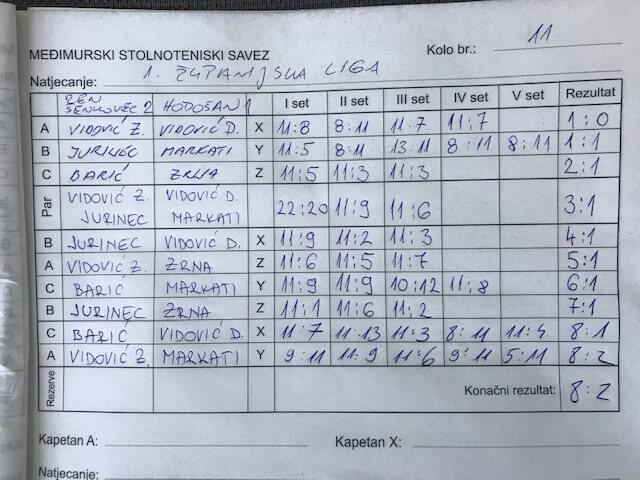 MEĐIMURSKI STOLNOTENISKI SAVEZ
Kolo br.: 11
Natjecanje: 1. ŽUPANIJSKA LIGA
ZEN SENKOVEC 2 HODOŠAN 1 I set II set III set IV set V set Rezultat
A VIDOVIĆ Z. VIDOVIĆ D. X 11:8 8:11 11:7 11:7 1:0
B JURINEC MARKATI Y 11:5 8:11 13:11 8:11 8:11 1:1
C BARIĆ ZRNA Z 11:5 11:3 11:3 2:1
Par VIDOVIĆ Z. VIDOVIĆ D.
JURINEC MARKATI 22:20 11:9 11:6 3:1
B JURINEC VIDOVIĆ D. X 11:9 11:2 11:3 4:1
A VIDOVIĆ Z. ZRNA Z 11:6 11:5 11:7 5:1
C BARIĆ MARKATI Y 11:9 11:9 10:12 11:8 6:1
B JURINEC ZRNA Z 11:1 11:6 11:2 7:1
C BARIĆ VIDOVIĆ D. X 11:7 11:13 11:3 8:11 11:4 8:1
A VIDOVIĆ Z. MARKATI Y 9:11 11:9 11:6 9:11 5:11 8:2
Rezerve Konačni rezultat: 8:2
Kapetan A: Kapetan X:
Natjecanje: